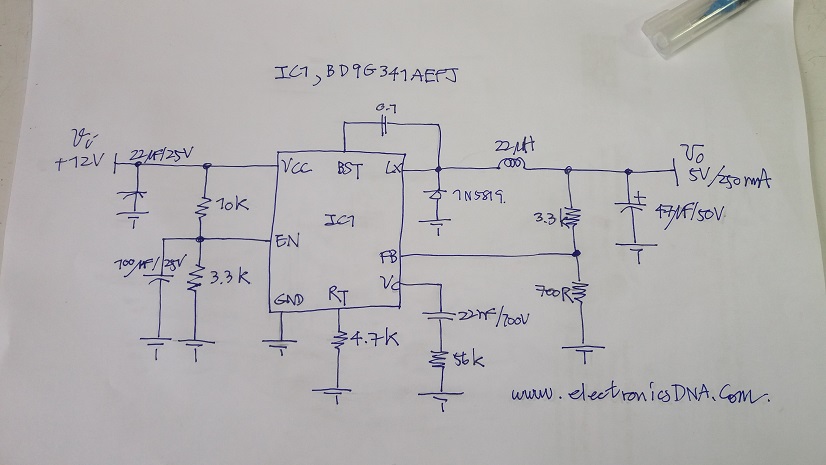 IC1, BD9G341AEFJ
0.1
Vi
+12V
22µF/25V
22µH
Vo
5V/250mA
VCC
BST
LX
10K
1N5819.
3.3k
47µF/50V
IC1
EN
FB
100µF/25V
3.3K
VC
700R
GND
RT
22nF/100V
4.7K
56k
www.electronicsDNA.com.